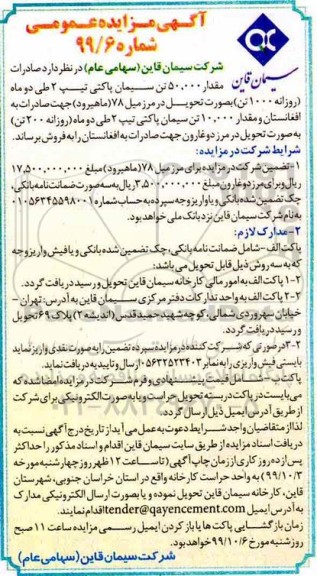 آگهی مزایده عمومی
شماره ۹۹/۶
سیمان قاین
شرکت سیمان قاین (سهامی عام) در نظر دارد صادرات
مقدار ۵۰,۰۰۰ تن سیمان پاکتی تیپ ۲ طی دو ماه
(روزانه ۱۰۰۰ تن) بصورت تحویل در مرز میل ۷۸ (ماهیرود) جهت صادرات به
افغانستان و مقدار ۱۰,۰۰۰ تن سیمان پاکتی تیپ ۲ طی دو ماه (روزانه ۲۰۰ تن)
به صورت تحویل در مرز دوغارون جهت صادرات به افغانستان را به فروش برساند.
شرایط شرکت در مزایده:
۱- تضمین شرکت در مزایده برای مرز میل ۷۸ (ماهیرود) مبلغ ۱۷,۵۰۰,۰۰۰,۰۰۰
ریال و برای مرز دوغارون مبلغ ۳,۵۰۰,۰۰۰,۰۰۰ ریال به سه صورت ضمانت نامه بانکی،
چک تضمین شده بانکی و یا واریز وجه سپرده به حساب شماره ۰۱۰۵۶۳۴۵۵۹۸۰۰۱
به نام شرکت سیمان قاین نزد بانک ملی خواهد بود.
۲- مدارک لازم:
پاکت الف - شامل ضمانت نامه بانکی، چک تضمین شده بانکی و یا فیش واریز وجه
که به سه روش ذیل قابل تحویل می باشد:
۲-۱ پاکت الف به امور مالی کارخانه سیمان قاین تحویل و رسید دریافت گردد.
۲-۲ پاکت الف به واحد تدارکات دفتر مرکزی سیمان قاین به آدرس: تهران -
خیابان سهروردی شمالی، کوچه شهید حمید قدس (اندیشه ۲) پلاک ۶۹ تحویل
و رسید دریافت گردد.
۲-۳ در صورتی که شرکت کننده در مزایده سپرده تضمین را به صورت نقدی واریز نماید
بایستی فیش واریزی را به نمابر ۰۵۶۳۲۵۲۳۴۰۳ ارسال و تاییدیه دریافت نماید.
پاکت ب - شامل قیمت پیشنهادی و فرم شرکت در مزایده امضا شده که
می بایست در پاکت در بسته تحویل حراست و یا به صورت الکترونیکی برای شرکت
از طریق آدرس ایمیل ذیل ارسال گردد.
لذا از متقاضیان واجد شرایط دعوت به عمل می آید از تاریخ درج آگهی نسبت به
دریافت اسناد مزایده از طریق سایت سیمان قاین اقدام و اسناد مذکور را حداکثر
پس از ده روز کاری از زمان چاپ آگهی (تا ساعت ۱۲ ظهر روز چهارشنبه مورخه
۹۹/۱۰/۳) به واحد حراست کارخانه واقع در استان خراسان جنوبی، شهرستان
قاین، کارخانه سیمان قاین تحویل نموده و یا بصورت ارسال الکترونیکی مدارک
به آدرس ایمیل tender@qayencement.com اقدام نمایند.
زمان بازگشایی پاکت ها یا باز کردن ایمیل رسمی مزایده ساعت ۱۱ صبح
روز شنبه مورخ ۹۹/۱۰/۶ خواهد بود.
شرکت سیمان قاین (سهامی عام)